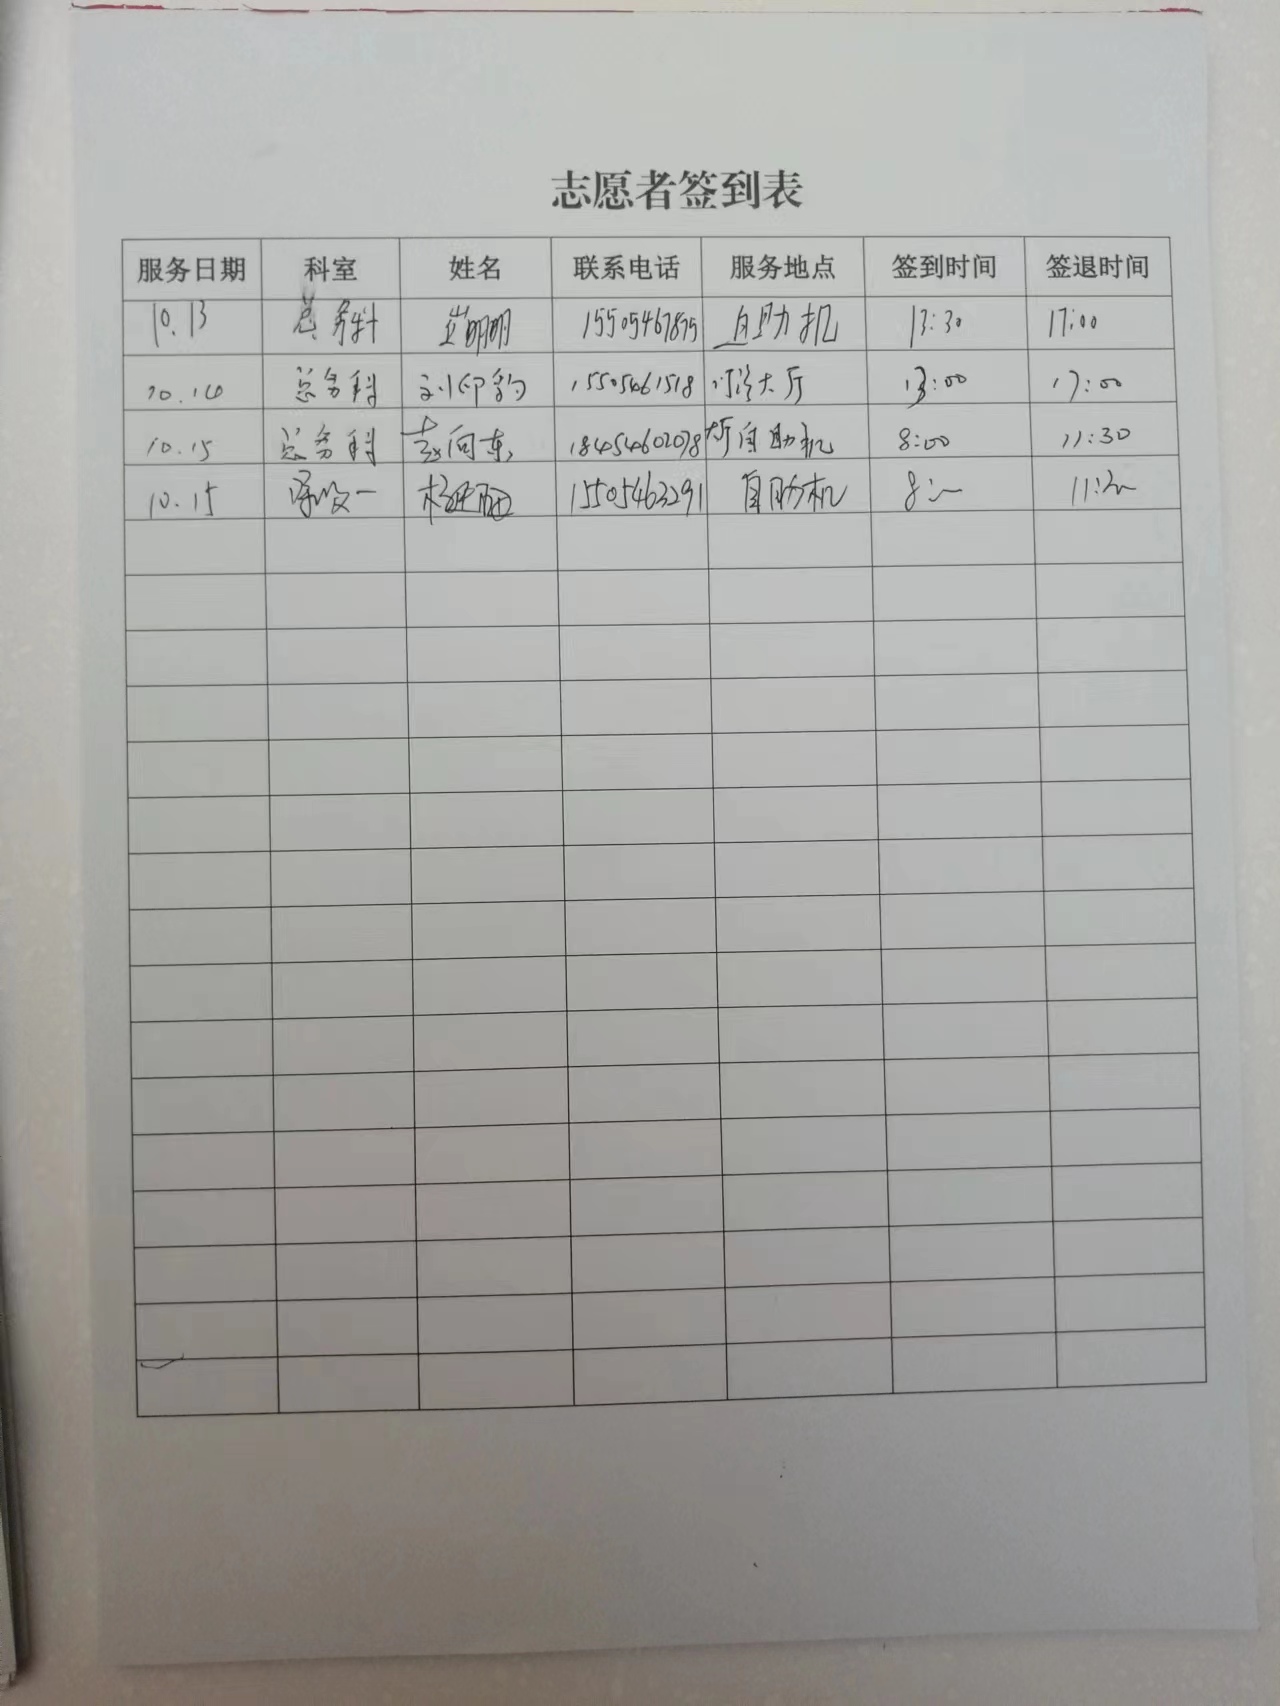 志愿者签到表
服务日期 科室 姓名 联系电话 服务地点 签到时间 签退时间
10.13 总务科 崔明明 15505467895 自助机 13:30 17:00
10.14 总务科 刘印豹 15505461518 门诊大厅 13:00 17:00
10.15 总务科 向东 18454602078 大厅自助机 8:00 11:30
10.15 一 杨 15505463291 自助机 8: 11:3